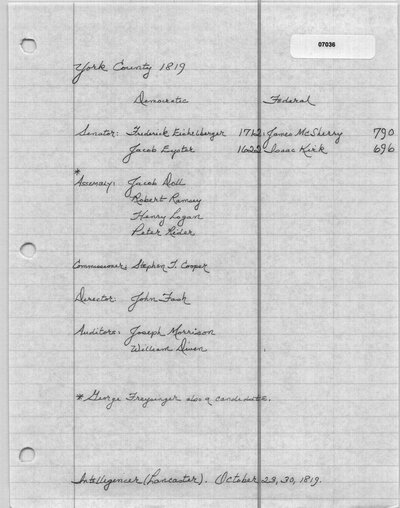 07036
York County 1819
Democratic Federal
Senator: Frederick Eichelberger 1712 James McSherry 790
Jacob Eyster 1622 Isaac Kirk 696
*
Assembly: Jacob Doll
Robert Ramsey
Henry Logan
Peter Rider
Commissioner: Stephen T. Cooper
Director: John Fash
Auditors: Joseph Morrison
William Diven
* George Fraysinger also a candidate.
Intelligencer (Lancaster). October 23, 30, 1819.